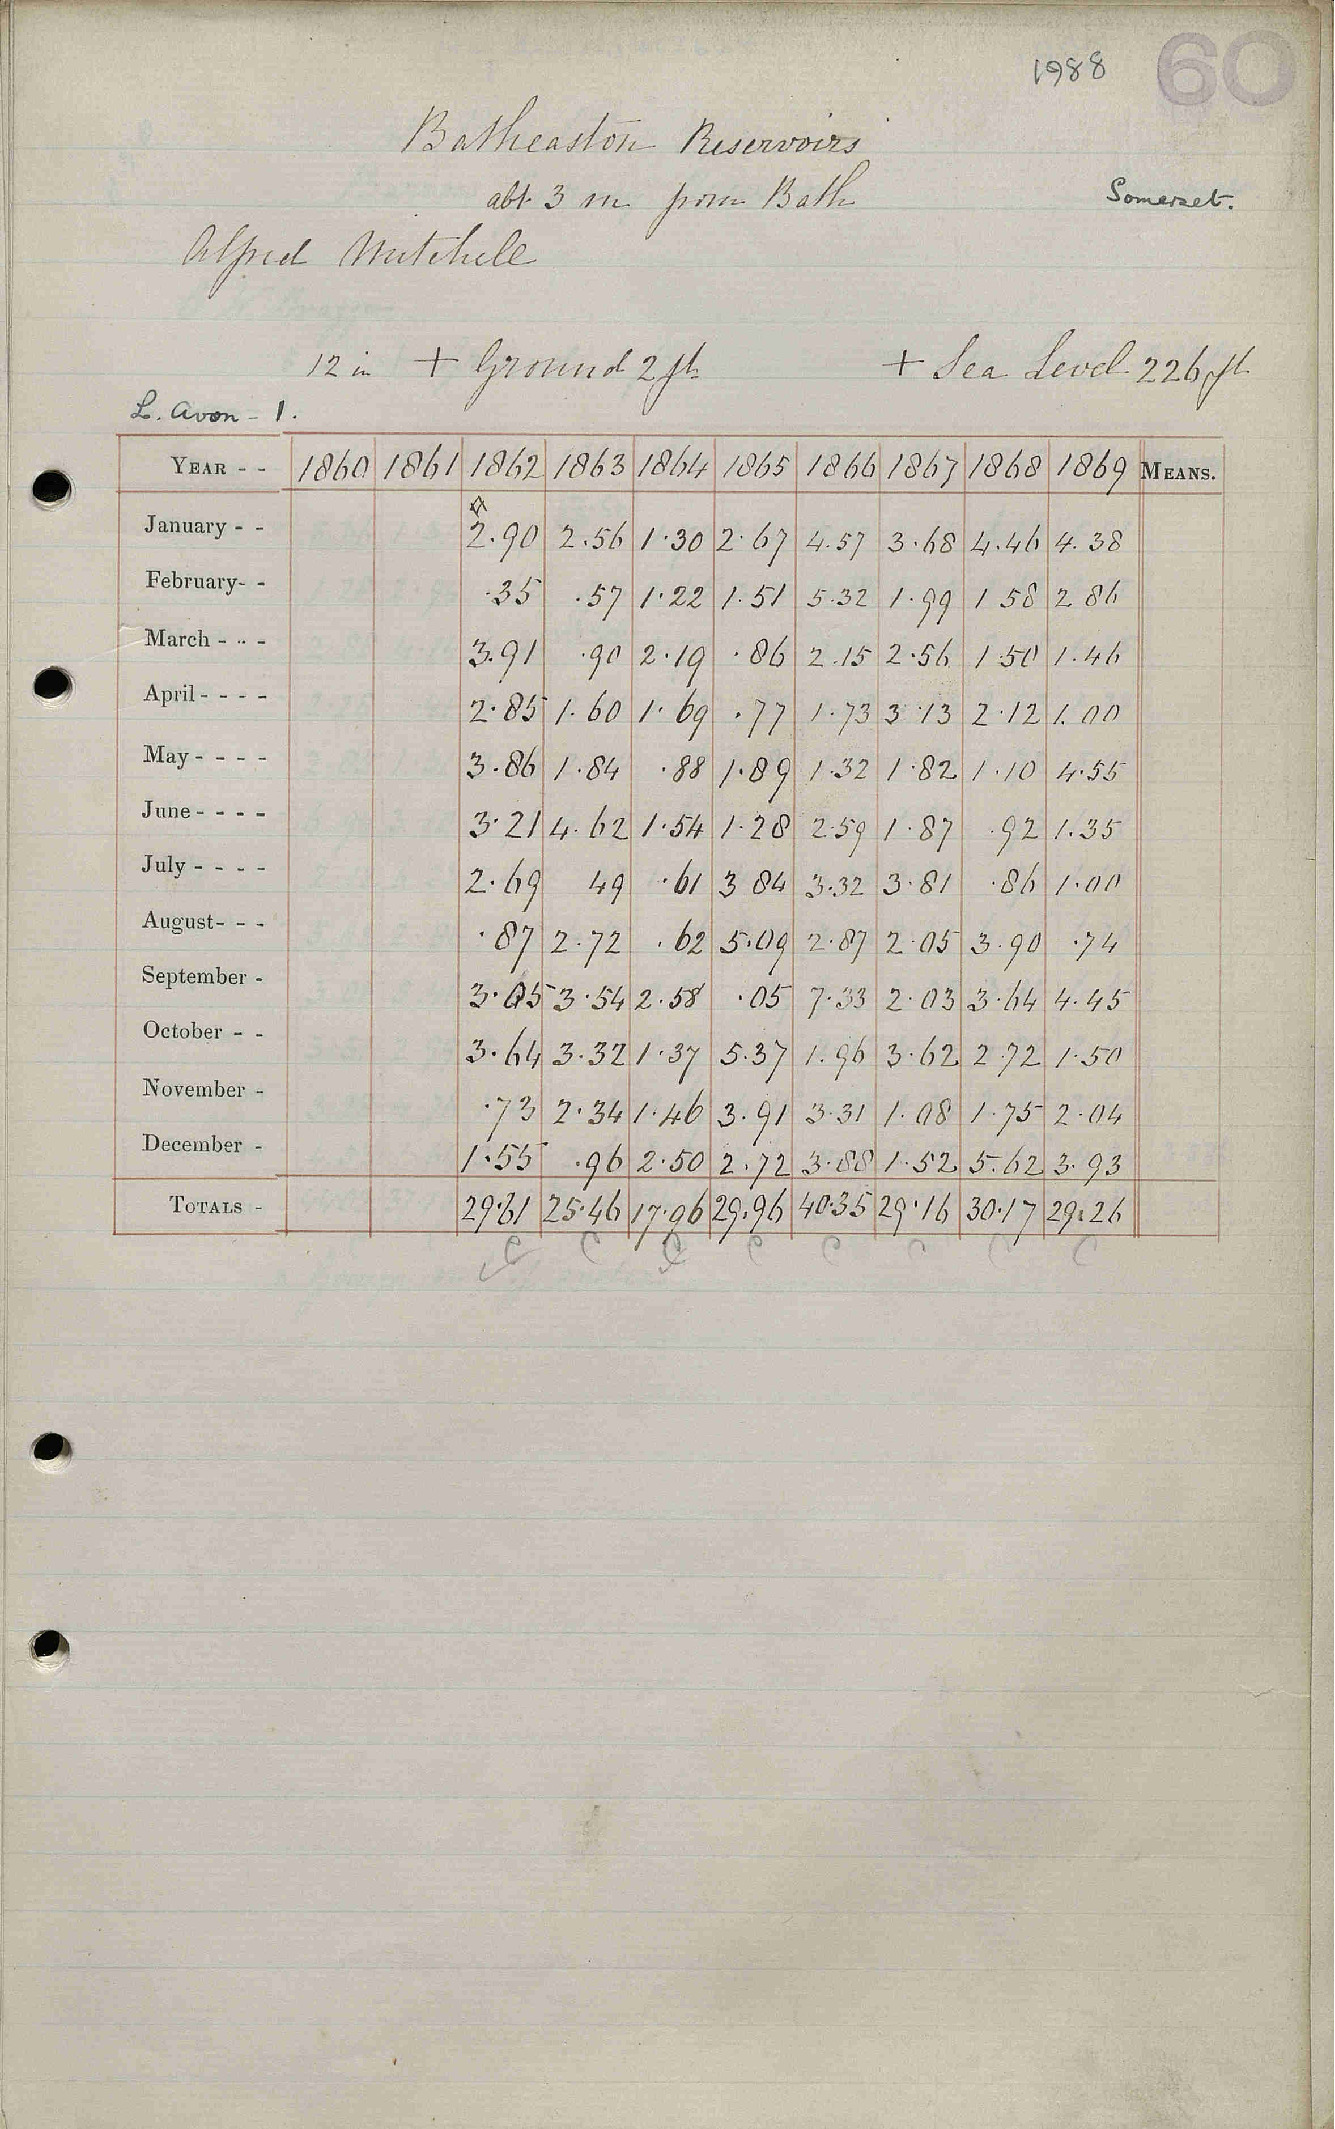 1988 60
Batheaston Reservoirs
abt. 3 m from Bath Somerset.
Alfred Mitchell
12 in + Ground 2 ft + Sea Level 226 ft
L. Avon - 1.
YEAR - - 1860 1861 1862 1863 1864 1865 1866 1867 1868 1869 MEANS.
January - - 2.90 2.56 1.30 2.67 4.57 3.68 4.46 4.38
February- - .35 .57 1.22 1.51 5.32 1.99 1 58 2 86
March - - - 3.91 .90 2.19 .86 2.15 2.56 1 50 1.46
April - - - - 2.85 1.60 1.69 .77 1.73 3 13 2.12 1.00
May - - - - 3.86 1.84 .88 1.89 1.32 1.82 1.10 4.55
June - - - - 3.21 4.62 1.54 1.28 2.59 1.87 .92 1.35
July - - - - 2.69 49 .61 3 84 3.32 3.81 .86 1.00
August- - - .87 2.72 .62 5.09 2.87 2.05 3.90 .74
September - 3.05 3.54 2.58 .05 7.33 2.03 3.64 4.45
October - - 3.64 3.32 1.37 5.37 1.96 3.62 2.72 1.50
November - .73 2.34 1.46 3.91 3.31 1.08 1.75 2.04
December - 1.55 .96 2.50 2.72 3.88 1.52 5.62 3.93
TOTALS - 29.61 25.46 17.96 29.96 40.35 29.16 30.17 29.26
C C C C C C C C